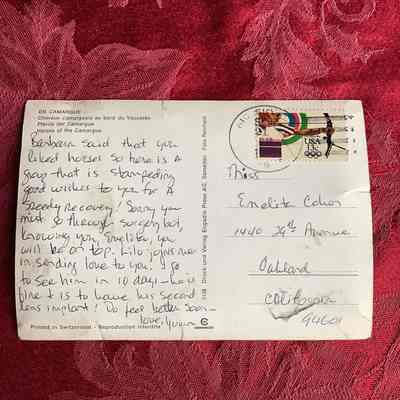 EN CAMARGUE
Chevaux camarguais au bord du Vaccarès
Pferde der Camargue
Horses of the Camargue
Barbara said that you
liked horses so here is a
group that is stampeding
good wishes to you for a
speedy recovery! Sorry you
must go through surgery but,
knowing you, Emelita, you
will be on top. Lilo joins me
in sending love to you. I go
to see him in 10 days – he is
fine & is to have his second
lens implant! Do feel better soon –
love,
Printed in Switzerland - Reproduction interdite
1138 Druck und Verlag Engadin Press AG, Samedan Foto Reinhard
USA
13c
Miss
Emelita Cohen
1440 29th Avenue
Oakland
California
94601